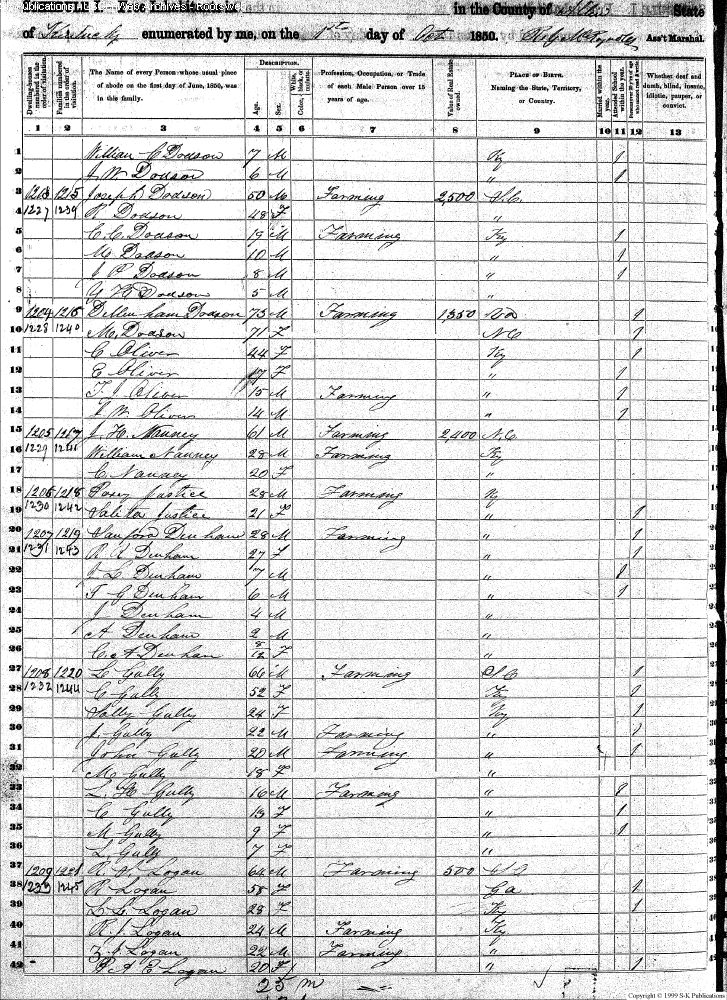 in the County of State
of Kentucky enumerated by me, on the 1st day of Oct 1850. Ass't Marshal.
Dwelling-houses numbered in the order of visitation.
Families numbered in the order of visitation.
The Name of every Person whose usual place of abode on the first day of June, 1850, was in this family.
DESCRIPTION.
Age.
Sex.
White, black, or mulatto.
Color,
Profession, Occupation, or Trade of each Male Person over 15 years of age.
Value of Real Estate owned.
PLACE OF BIRTH.
Naming the State, Territory, or Country.
Married within the year.
Attended School within the year.
Whether deaf and dumb, blind, insane, idiotic, pauper, or convict.
1 2 3 4 5 6 7 8 9 10 11 12 13
1 William C Dodson 7 M Ky 1
2 J. W. Dodson 6 M " 1
3 1203 1215 Joseph Dodson 50 M Farming 2,500 S.C.
4 1227 1239 R Dodson 48 F "
5 C. C. Dodson 19 M Farming Ky 1
6 M Dodson 10 M " 1
7 J R Dodson 8 M " 1
8 Dodson 5 M "
9 1204 1216 Dodson 73 M Farming 1,350 Va 1
10 1228 1240 M. Dodson 71 F N C 1
11 C Oliver 44 F Ky 1
12 E Oliver 17 F " 1
13 T. J. Oliver 15 M Farming " 1
14 J. W. Oliver 14 M " 1
15 1205 1217 J. H. Nanney 61 M Farming 2,400 N.C.
16 1229 1241 William Nanney 28 M Farming Ky
17 C. Nanney 20 F "
18 1206 1218 Posey Justice 28 M Farming Ky
19 1230 1242 Justice 21 F " 1
20 1207 1219 Sanford Denham 28 M Farming " 1
21 1231 1243 R. R Denham 27 F " 1
22 J L Denham 7 M " 1
23 T G Denham 6 M " 1
24 J Denham 4 M "
25 A Denham 2 M "
26 C. A Denham 8/12 F "
27 1208 1220 L. Gully 66 M Farming S C 1
28 1232 1244 C Gully 52 F Ky 1
29 Sally Gully 24 F Ky 1
30 J. Gully 22 M Farming " 1
31 John Gully 20 M Farming " 1
32 M Gully 18 F "
33 L. H Gully 16 M Farming " 1
34 C Gully 13 F " 1
35 M Gully 9 F " 1
36 L Gully 7 F "
37 1209 1221 Logan 64 M Farming 500
38 1233 1245 R Logan 58 F Ga 1
39 L. L. Logan 28 F Ky 1
40 R. J. Logan 24 M Farming Ky
41 Logan 22 M Farming "
42 A E Logan 20 F " 1
25 m
Copyright © 1999 S-K Publications